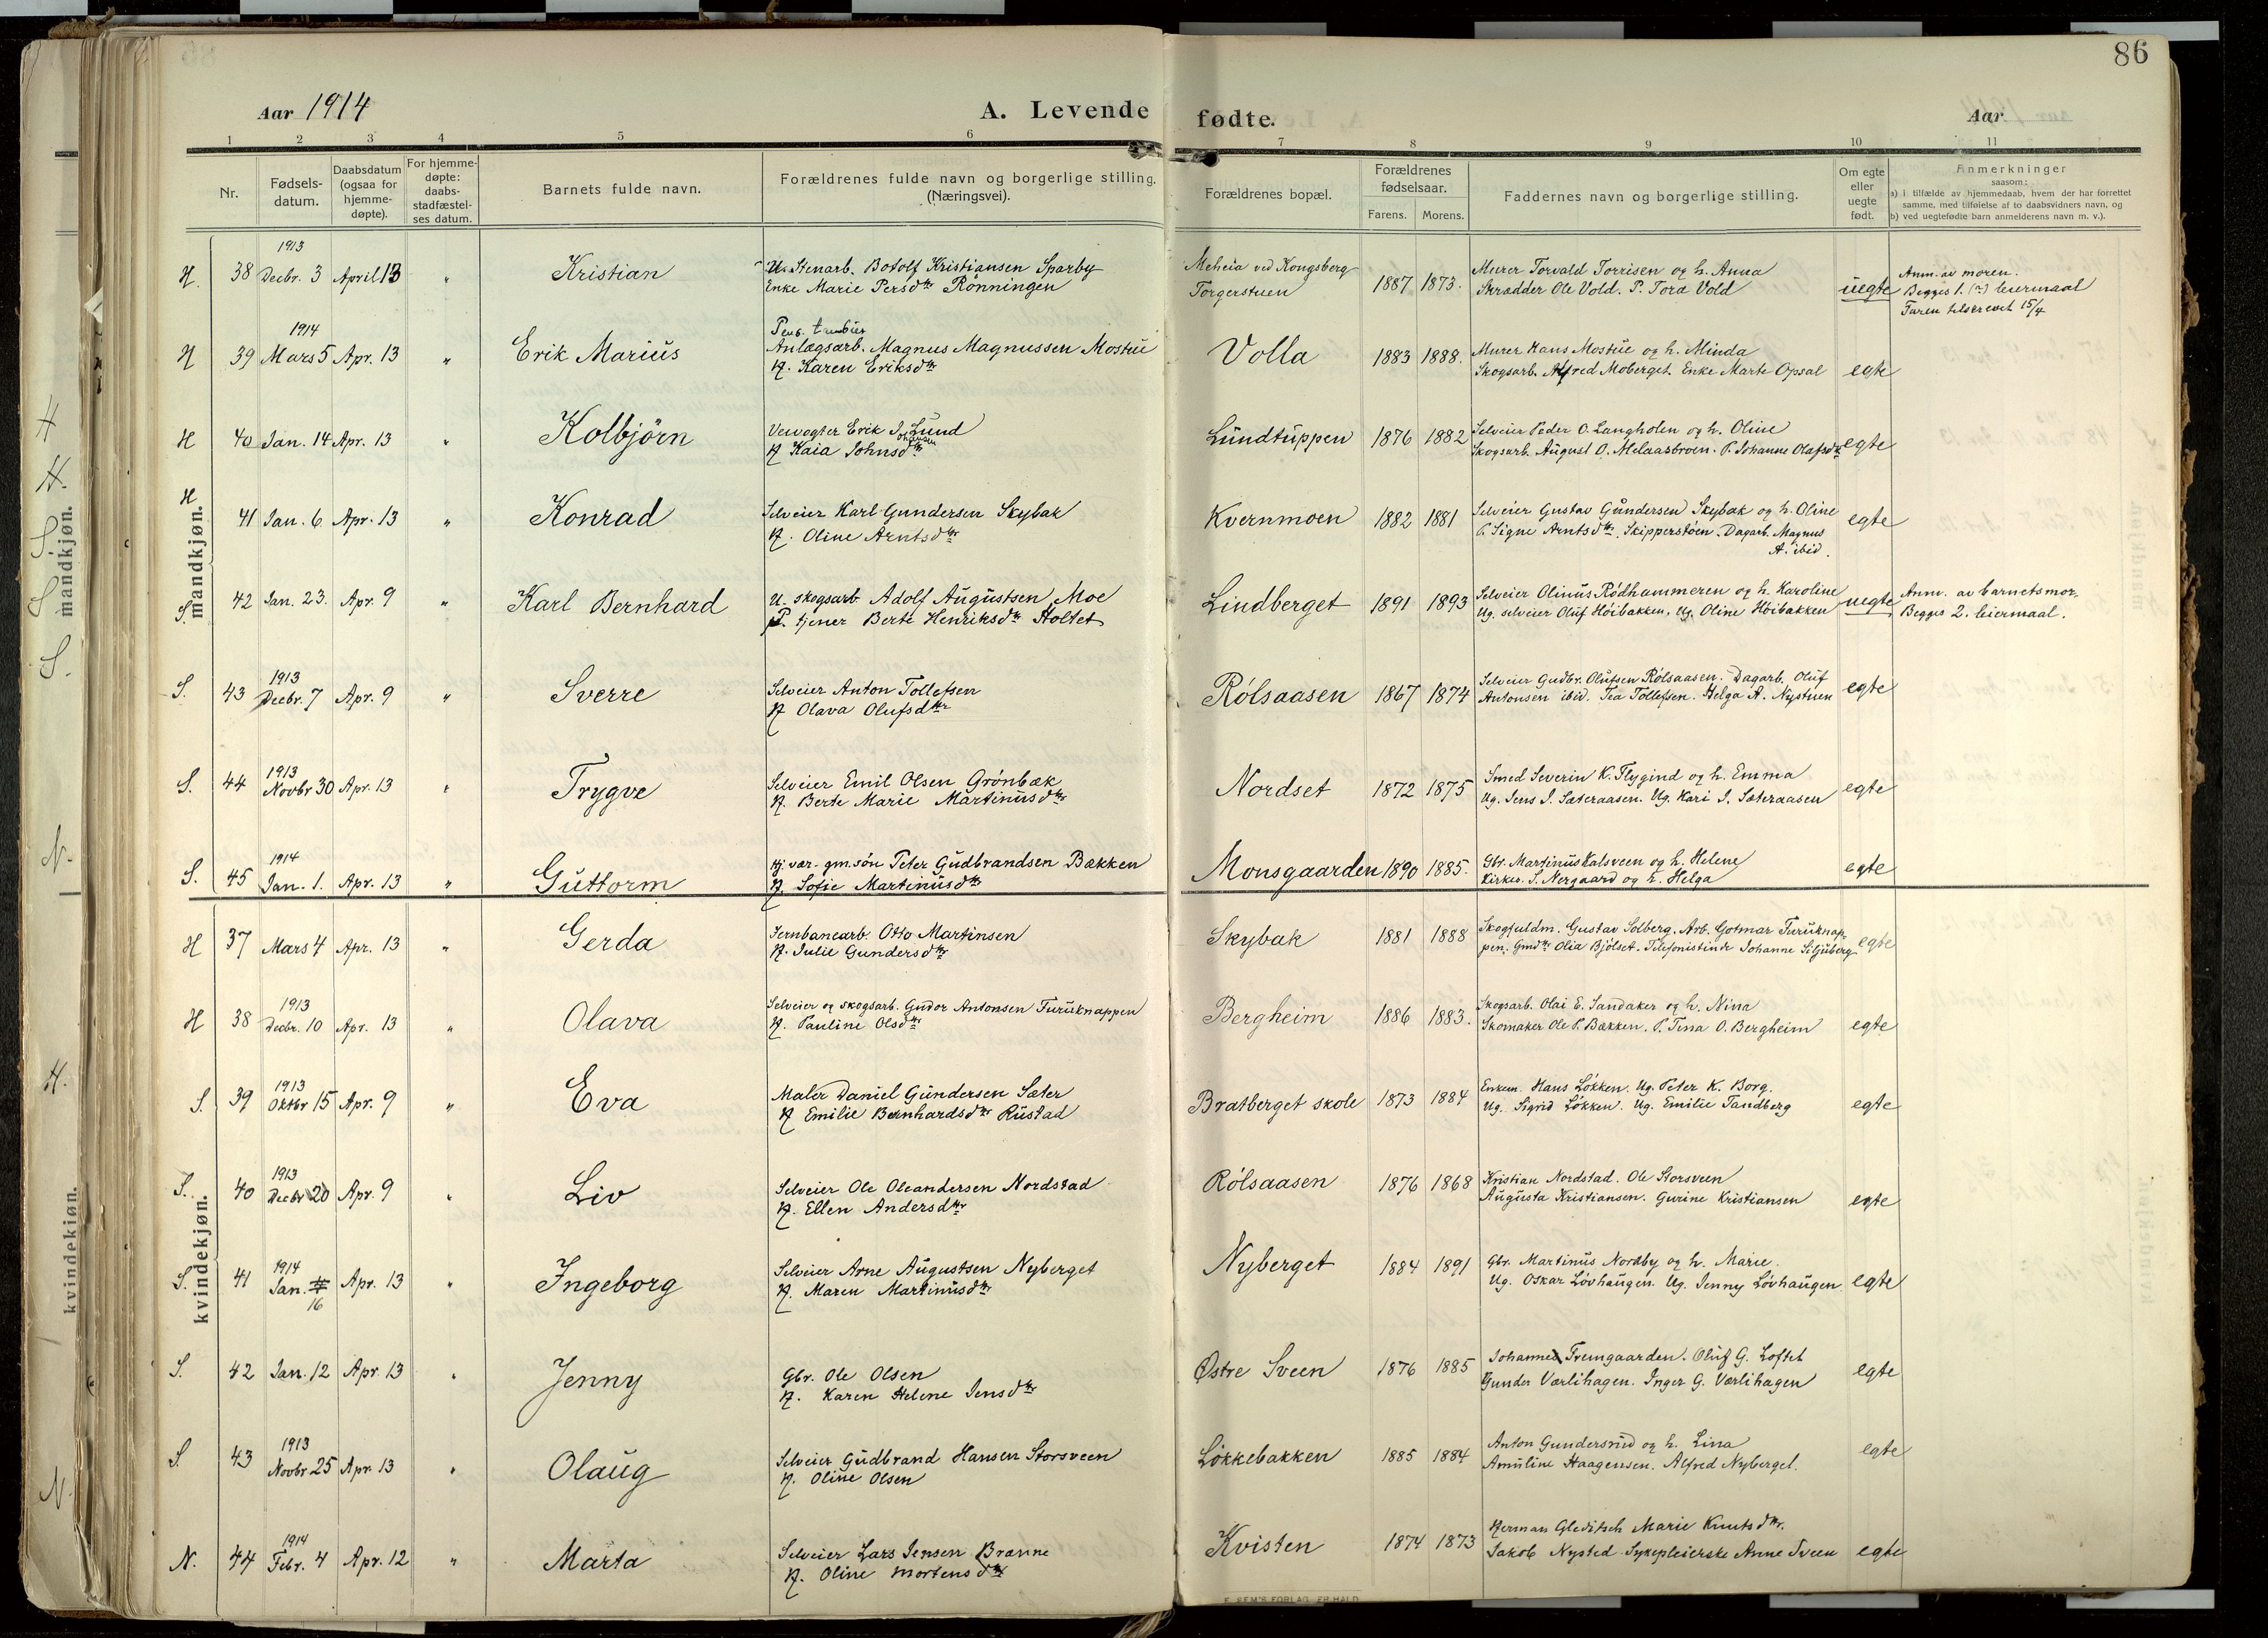 86
Aar 1914
A. Levende fødte.
Aar
1 2 3 4 5 6 7 8 9 10 11
Nr.
Fødsels-
datum.
Daabsdatum
(ogsaa for
hjemme-
døpte).
For hjemme-
døpte:
daabs-
stadfæstel-
ses datum.
Barnets fulde navn.
Forældrenes fulde navn og borgerlige stilling.
(Næringsvei).
Forældrenes bopæl.
Forældrenes
fødselsaar.
Farens. Morens.
Faddernes navn og borgerlige stilling.
Om egte
eller
uegte
født.
Anmerkninger
saasom:
a) i tilfælde av hjemmedaab, hvem der har forrettet
samme, med tilføielse af to daabsvidners navn, og
b) ved uegtefødte barn anmelderens navn m. v.).
mandkjøn.
1913
H. 38 Decbr. 3 April 13 " Kristian
U. Stenarb. Botolf Kristiansen Sparby
Enke Marie Persdtr Rönningen
Meheia ved Kongsberg
Torgerstuen
1887 1873.
Murer Torvald Torrisen og h. Anna
Skrædder Ole Vold. P. Tora Vold
uegte
Anm. av moren.
Begges 1. (?) leiermaal
Faren tilskrevet 15/4
1914
H 39 Mars 5 Apr. 13 " Erik Marius
Anlægsarb. Magnus Magnussen Mostue
H. Karen Eriksdtr
Volla 1883 1888.
Murer Hans Mostue og h. Minda
Skogsarb. Alfred Moberget. Enke Marte Opsal
egte
H 40 Jan. 14 Apr. 13 " Kolbjörn
Veivogter Erik Johansen Lund
H Kaia Johnsdtr
Lundtuppen 1876 1882
Selveier Peder O. Langholen og h. Oline
Skogsarb. August O. Melaasbroen. P. Johanne Olafsdtr
egte
H 41 Jan. 6 Apr. 13 " Konrad
Selveier Karl Gundersen Skybak
H. Oline Arntsdtr
Kvernmoen 1882 1881
Selveier Gustav Gundersen Skybak og h. Oline
P. Signe Arntsdtr, Skipperstöen. Dagarb. Magnus
A. ibid.
egte
S. 42 Jan. 23. Apr. 9 " Karl Bernhard
U. skogsarb Adolf Augustsen Moe
P. tjener Berte Henriksdtr Holtet
Lindberget 1891 1893
Selveier Olinus Rødhammeren og h. Karoline
Ug. selveier Oluf Höibakken, Ug. Oline Höibakken
uegte
Anm. av barnetsmor.
Begges 2. leiermaal.
1913
S. 43 Decbr. 7 Apr. 9 " Sverre
Selveier Anton Tollefsen
H Olava Olufsdtr
Rólsaasen 1867 1874
Selveier Gudbr. Olufsen Rólsaasen. Dagarb. Oluf
Antonsen ibid. Tea Tollefsen. Helga A. Nystuen
egte
1913
S. 44 Novbr 30 Apr. 13 " Trygve
Selveier Emil Olsen Grönbæk
H. Berte Marie Martinusdtr
Nordset 1872 1875
Smed Severin K. Flygind og h. Emma
Ug. Jens J. Sæteraasen. Ug. Kari J. Sæteraasen
egte
1914
S. 45 Jan. 1. Apr. 13 " Guttorm
Hj vær. gm.søn Peter Gudbrandsen Bakken
H. Sofie Martinusdtr
Monsgaarden 1890 1885.
Gbr. Martinus Kalsveen og h. Helene
Kirkes. S. Nergaard og h. Helga
egte
kvindekjøn.
H 37 Mars 4 Apr. 13 " Gerda
Jernbanearb. Otto Martinsen
H. Julie Gundersdtr
Skybak 1881 1888
Skogfuldm. Gustav Solberg. Arb. Gotmar Turuknap-
pen. Gmdtr Olia Bjölset. Telefonistinde Johanne Siljuberg
egte
1913
H 38 Decbr. 10 Apr. 13 " Olava
Selveier og skogsarb. Gudor Antonsen Turuknappen
H. Pauline Olsdtr
Bergheim 1886 1883.
Skogsarb. Olai E. Sandaker og h. Nina
Skomaker Ole P. Bakken. P. Tina O. Bergheim
egte
1913
S. 39 Oktbr 15 Apr. 9 " Eva
Maler Daniel Gundersen Sæter
H Emilie Bernhardsdtr Rustad
Bratberget skole 1873 1884
Enkem. Hans Løkken. Ug. Peter K. Borg.
Ug. Sigrid Løkken. Ug. Emilie Tandberg
egte
1913
S. 40 Decbr 20 Apr. 9 " Liv
Selveier Ole Oleandersen Nordstad
H. Ellen Andersdtr
Rólsaasen 1876 1868
Kristian Nordstad. Ole Storsveen
Augusta Kristiansen. Gurine Kristiansen
egte
1914
S. 41 Jan. 16 Apr. 13 " Ingeborg
Selveier Arne Augustsen Nyberget
H. Maren Martinusdtr
Nyberget 1884 1891
Gbr. Martinus Nordby og h. Marie.
Ug. Oskar Lövhaugen. Ug. Jenny Lövhaugen
egte
S. 42 Jan. 12 Apr. 13 " Jenny
Gbr. Ole Olsen
H. Karen Helene Jensdtr
Østre Sveen 1876 1885
Johannes Fremgaarden. Oluf G. Loftet
Gunder Værlihagen. Inger G. Værlihagen
egte
1913
S. 43 Novbr 25 Apr. 13 " Olaug
Selveier Gudbrand Hansen Storsveen
H. Oline Olsen
Lökkebakken 1885 1884
Anton Gundersrud og h. Lina
Amuline Haagensen. Alfred Nyberget.
egte
1914
N. 44 Febr. 4 Apr. 12 " Marta
Selveier Lars Jensen Brænne
H. Oline Mortensdtr
Kvisten 1874 1873
Herman Gleditsch Marie Knutsdtr.
Jakob Nysted. Sykepleierske Anne Sveen
egte